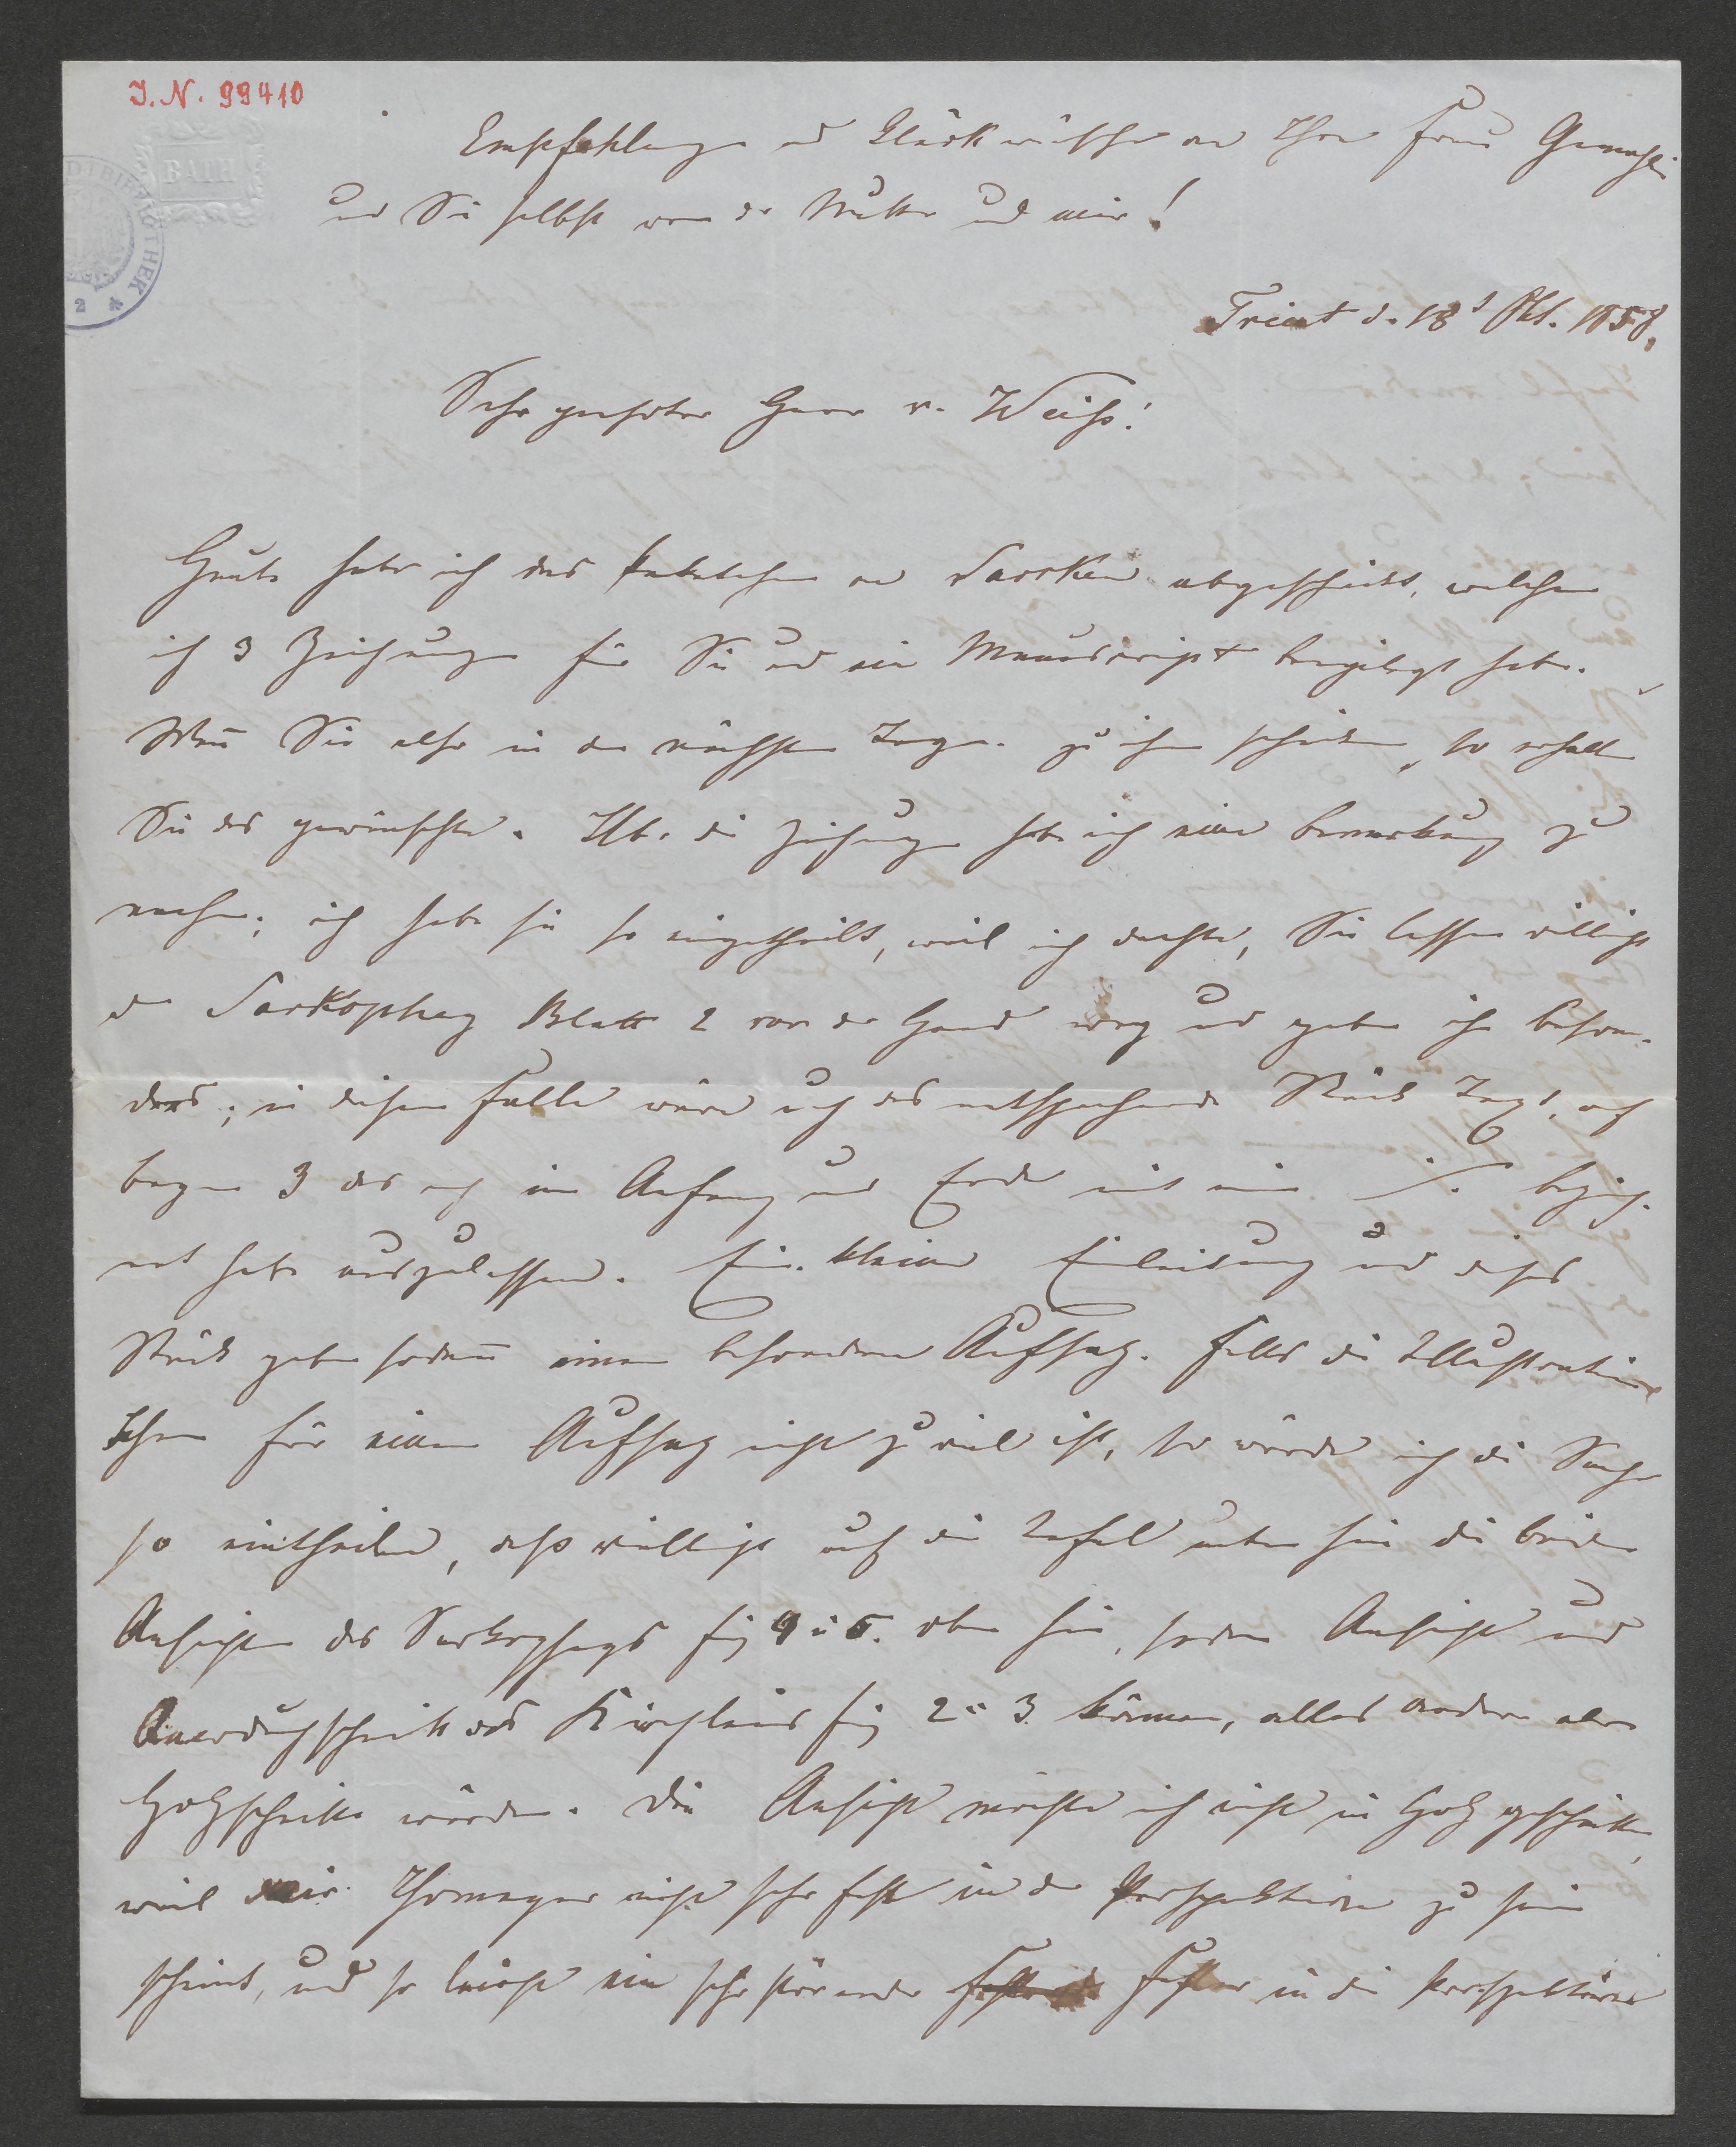 J. N. 99410
BATH
Empfehlungen und Glückwünsche an Ihre Frau Gemahlin
und Sie selbst von der Mutter und mir!
Trient d. 18t Okt. 1858.
Sehr geehrter Herr v. Weiss!
Heute habe ich das Paketchen an Sacken abgeschickt, welchem
ich 3 Zeichnungen für Sie und ein Manuscript beigelegt habe.
Wenn Sie also in den nächsten Tagen zu ihm schicken, so erhalten
Sie das gewünschte. Über die Zeichnungen habe ich eine Bemerkung zu
machen; ich habe sie so eingetheilt, weil ich dachte, Sie lassen vielleicht
den Sarkophag Blatt 2 vor der Hand weg und geben ihn beson-
ders; in diesem Falle wäre auch das entsprechende Stück Text, auf
Bogen 3 das ich im Anfang und Ende mit einem ·/· bezeich-
net habe auszulassen. Eine kleine Einleitung und dieses
Stück geben sodann einen besonderen Aufsatz. Falls die Illustration
Ihnen für einen Aufsatz nicht zu viel ist, so würde ich die Sache
so eintheilen, dass vielleicht auf die Tafel unten hin die beiden
Ansichten des Sarkophags fig 4 u 5. oben hin, sodann Ansicht und
Querdurchschnitt des Kirchleins fig 2 u 3. kämen, alles andere aber
Holzschnitte würden. Die Ansicht möchte ich nicht in Holz geschnitten,
weil mir Thomayer nicht sehr fest in der Perspektive zu sein
scheint, und so leicht ein sehr störender Fehler in die Perspektive